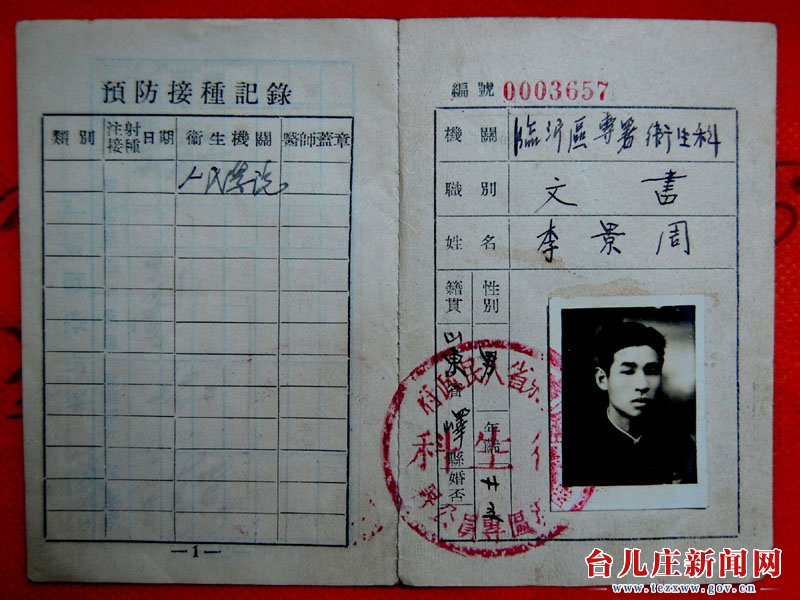 預防接種記錄
類別 注射接種日期 衛生機關 醫師蓋章
人民醫院
—1—
編號 0003657
機關 臨沂區專署衛生科
職別 文書
姓名 李景周
性別 男 年齡 廿五
籍貫 山東省嶧縣 婚否
台儿庄新闻网
www.tezxww.gov.cn